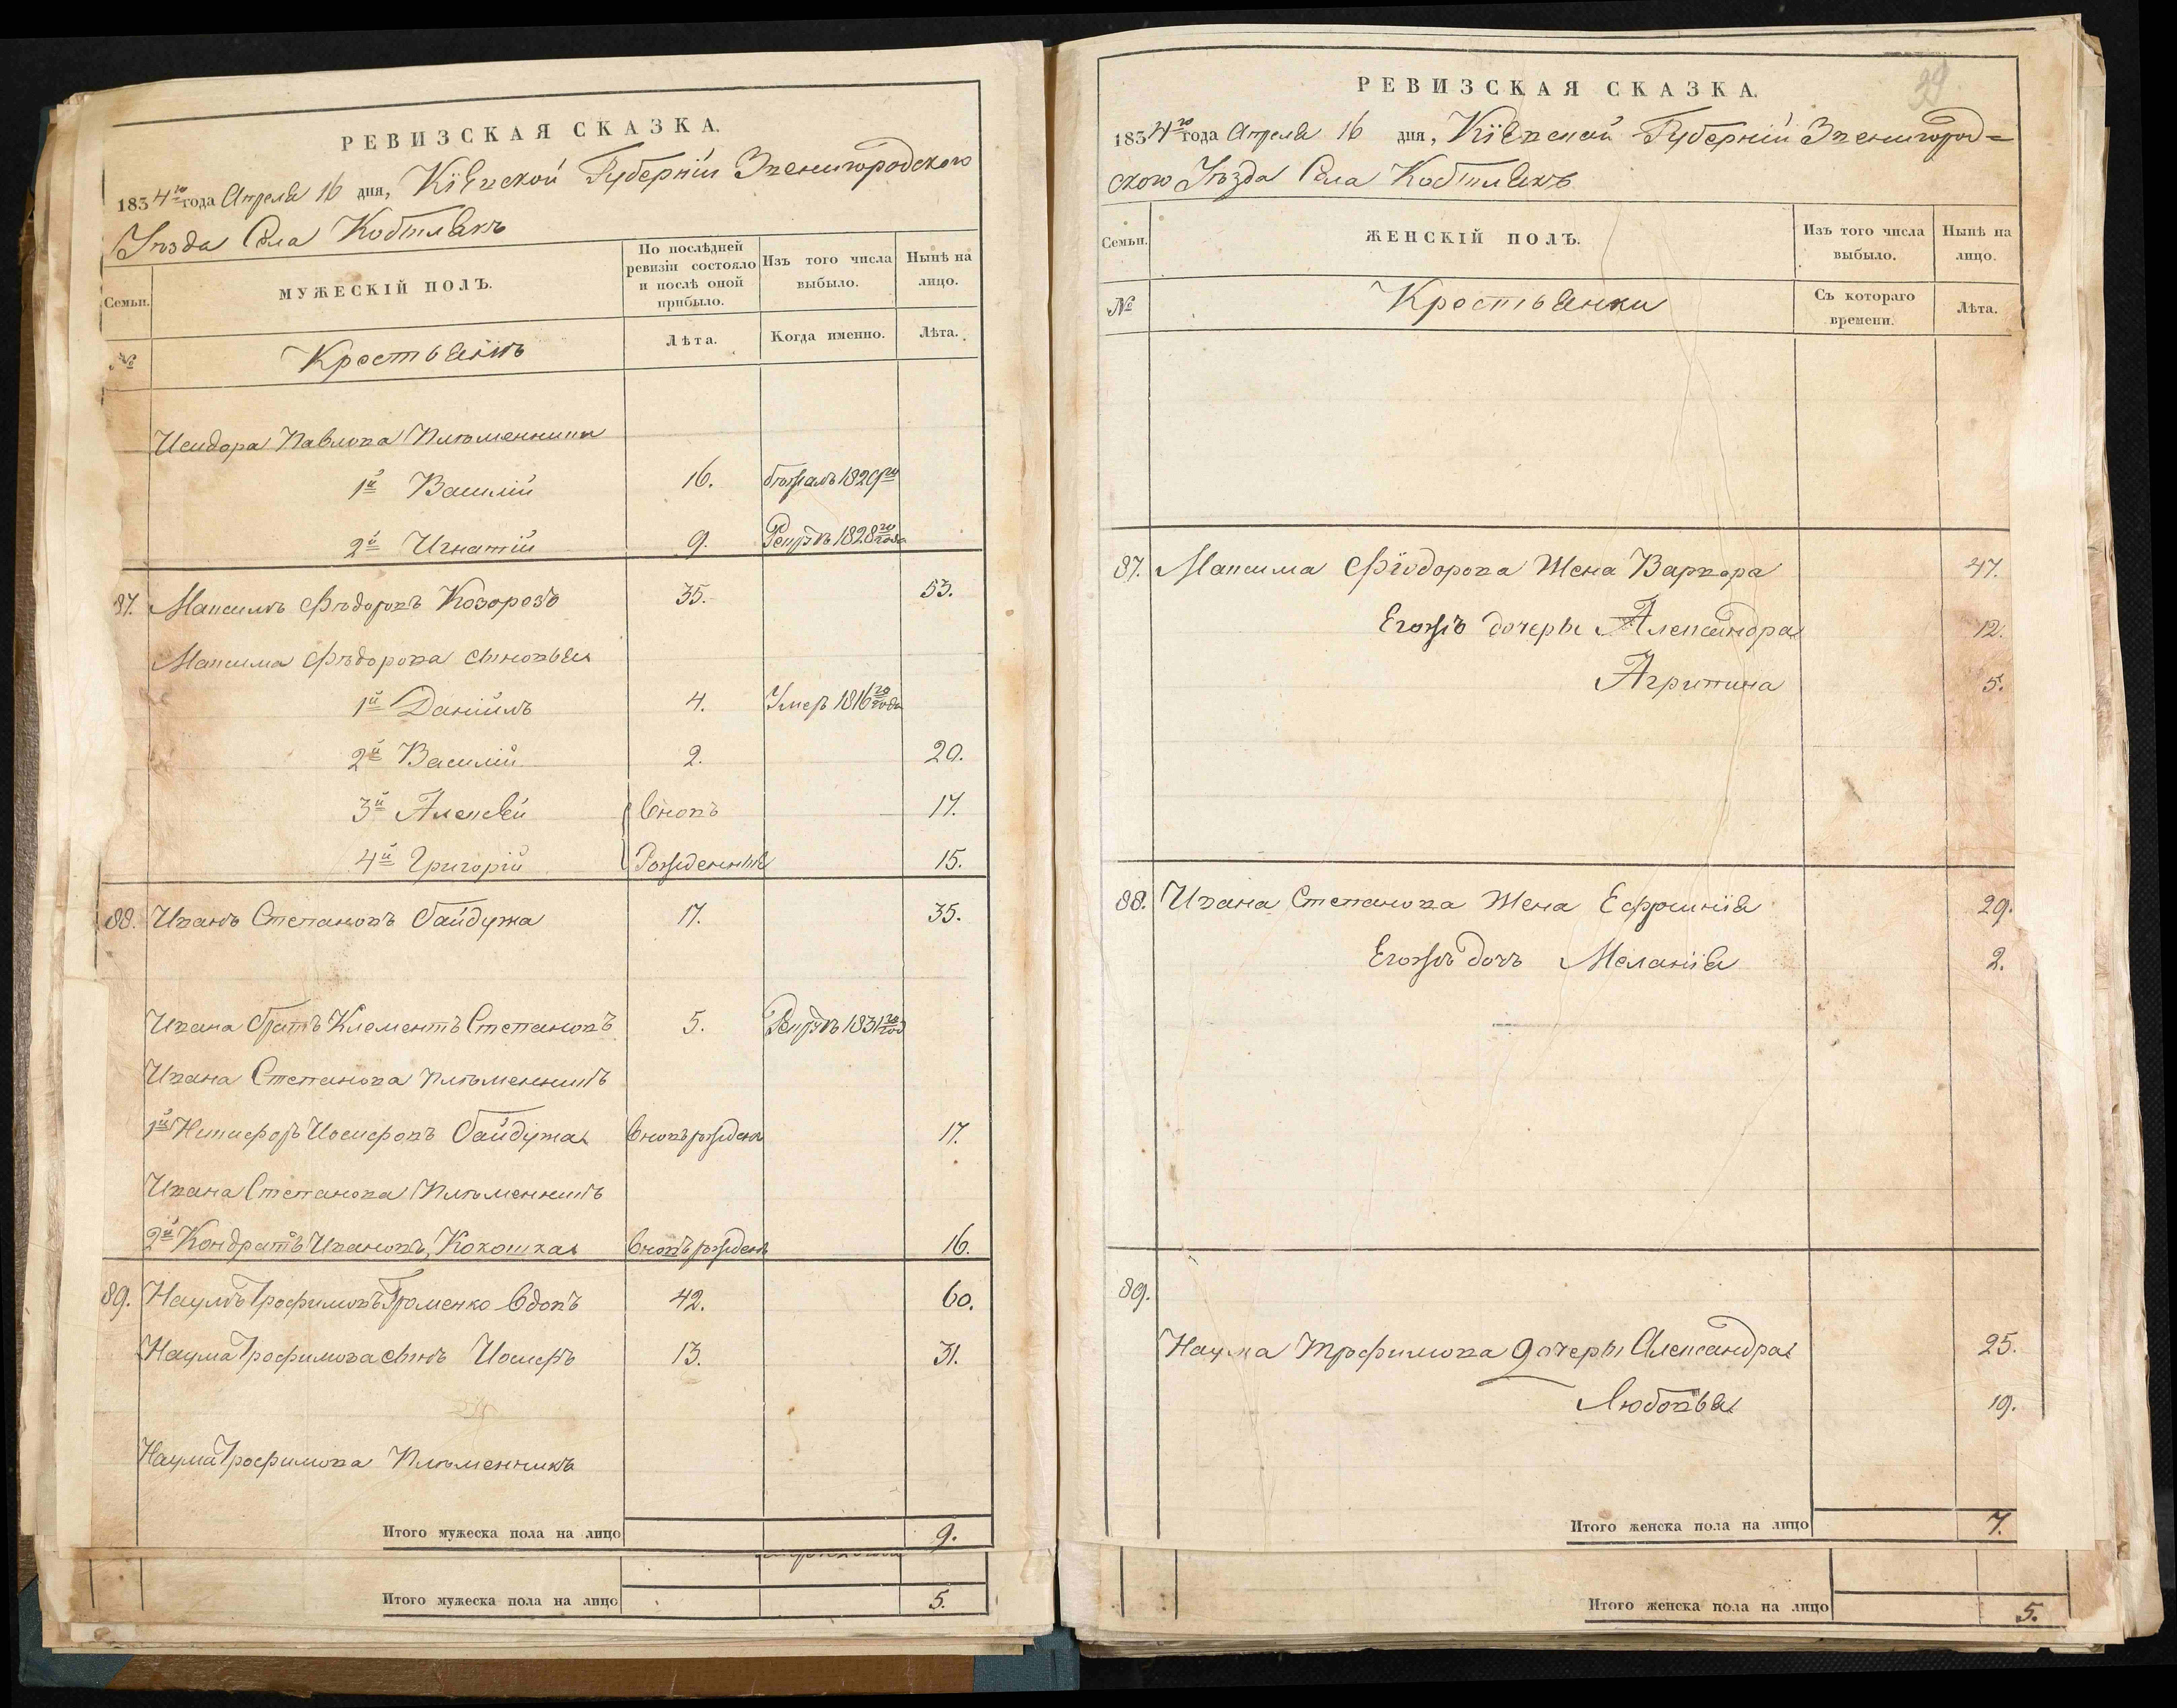 РЕВИЗСКАЯ СКАЗКА.
1834го года Апреля 16 дня, Кіевской Губерніи Звенигородского
Уѣзда Села
Семьи. МУЖЕСКІЙ ПОЛЪ. По послѣдней ревизіи состояло и послѣ оной прибыло. Изъ того числа выбыло. Нынѣ на лицо.
№ Крестьянъ Лѣта. Когда именно. Лѣта.
Исидора Павлова Племенники
1й Василій 16. бѣжалъ 1829го
2й Игнатій 9. Рекрутъ 1828го года
87. Максимъ Фѣдоровъ Козорозъ 35. 53.
Максима Фѣдорова сыновья
1й Даніилъ 4. Умеръ 1816го года
2й Василій 2. 20.
3й Алексѣй Вновь 17.
4й Григорій Рожденныя 15.
88. Иванъ Степановъ Байдужа 17. 35.
Ивана братъ Клементъ Степановъ 5. Рекрутъ 1831го год
Ивана Степанова племенникъ
1й Никифоръ Иосифовъ Байдужа Вновь рожденъ 17.
Ивана Степанова Племенникъ
2й Кондратъ Ивановъ, Кокошка Вновь рожденъ 16.
89. Наумъ Трофимовъ Громенко Вдовъ 42. 60.
Наума Трофимова сынъ Иосифъ 13. 31.
Наума Трофимова Племенникъ
Итого мужеска пола на лицо 9.
Итого мужеска пола на лицо 5.
39
РЕВИЗСКАЯ СКАЗКА.
1834го года Апреля 16 дня, Кіевской Губерніи Звенигород=
ского Уѣзда Села
Семьи. ЖЕНСКІЙ ПОЛЪ. Изъ того числа выбыло. Нынѣ на лицо.
№ Крестьянки Съ котораго времени. Лѣта.
87. Максима Фіодорова Жена Варвара 47.
Егожъ дочеры Александра 12.
Агрипина 5.
88. Ивана Степанова Жена Ефросинія 29.
Егожъ дочъ Меланія 2.
89.
Наума Трофимова дочеры Александра 25.
Любовья 19.
Итого женска пола на лицо 7.
Итого женска пола на лицо 5.